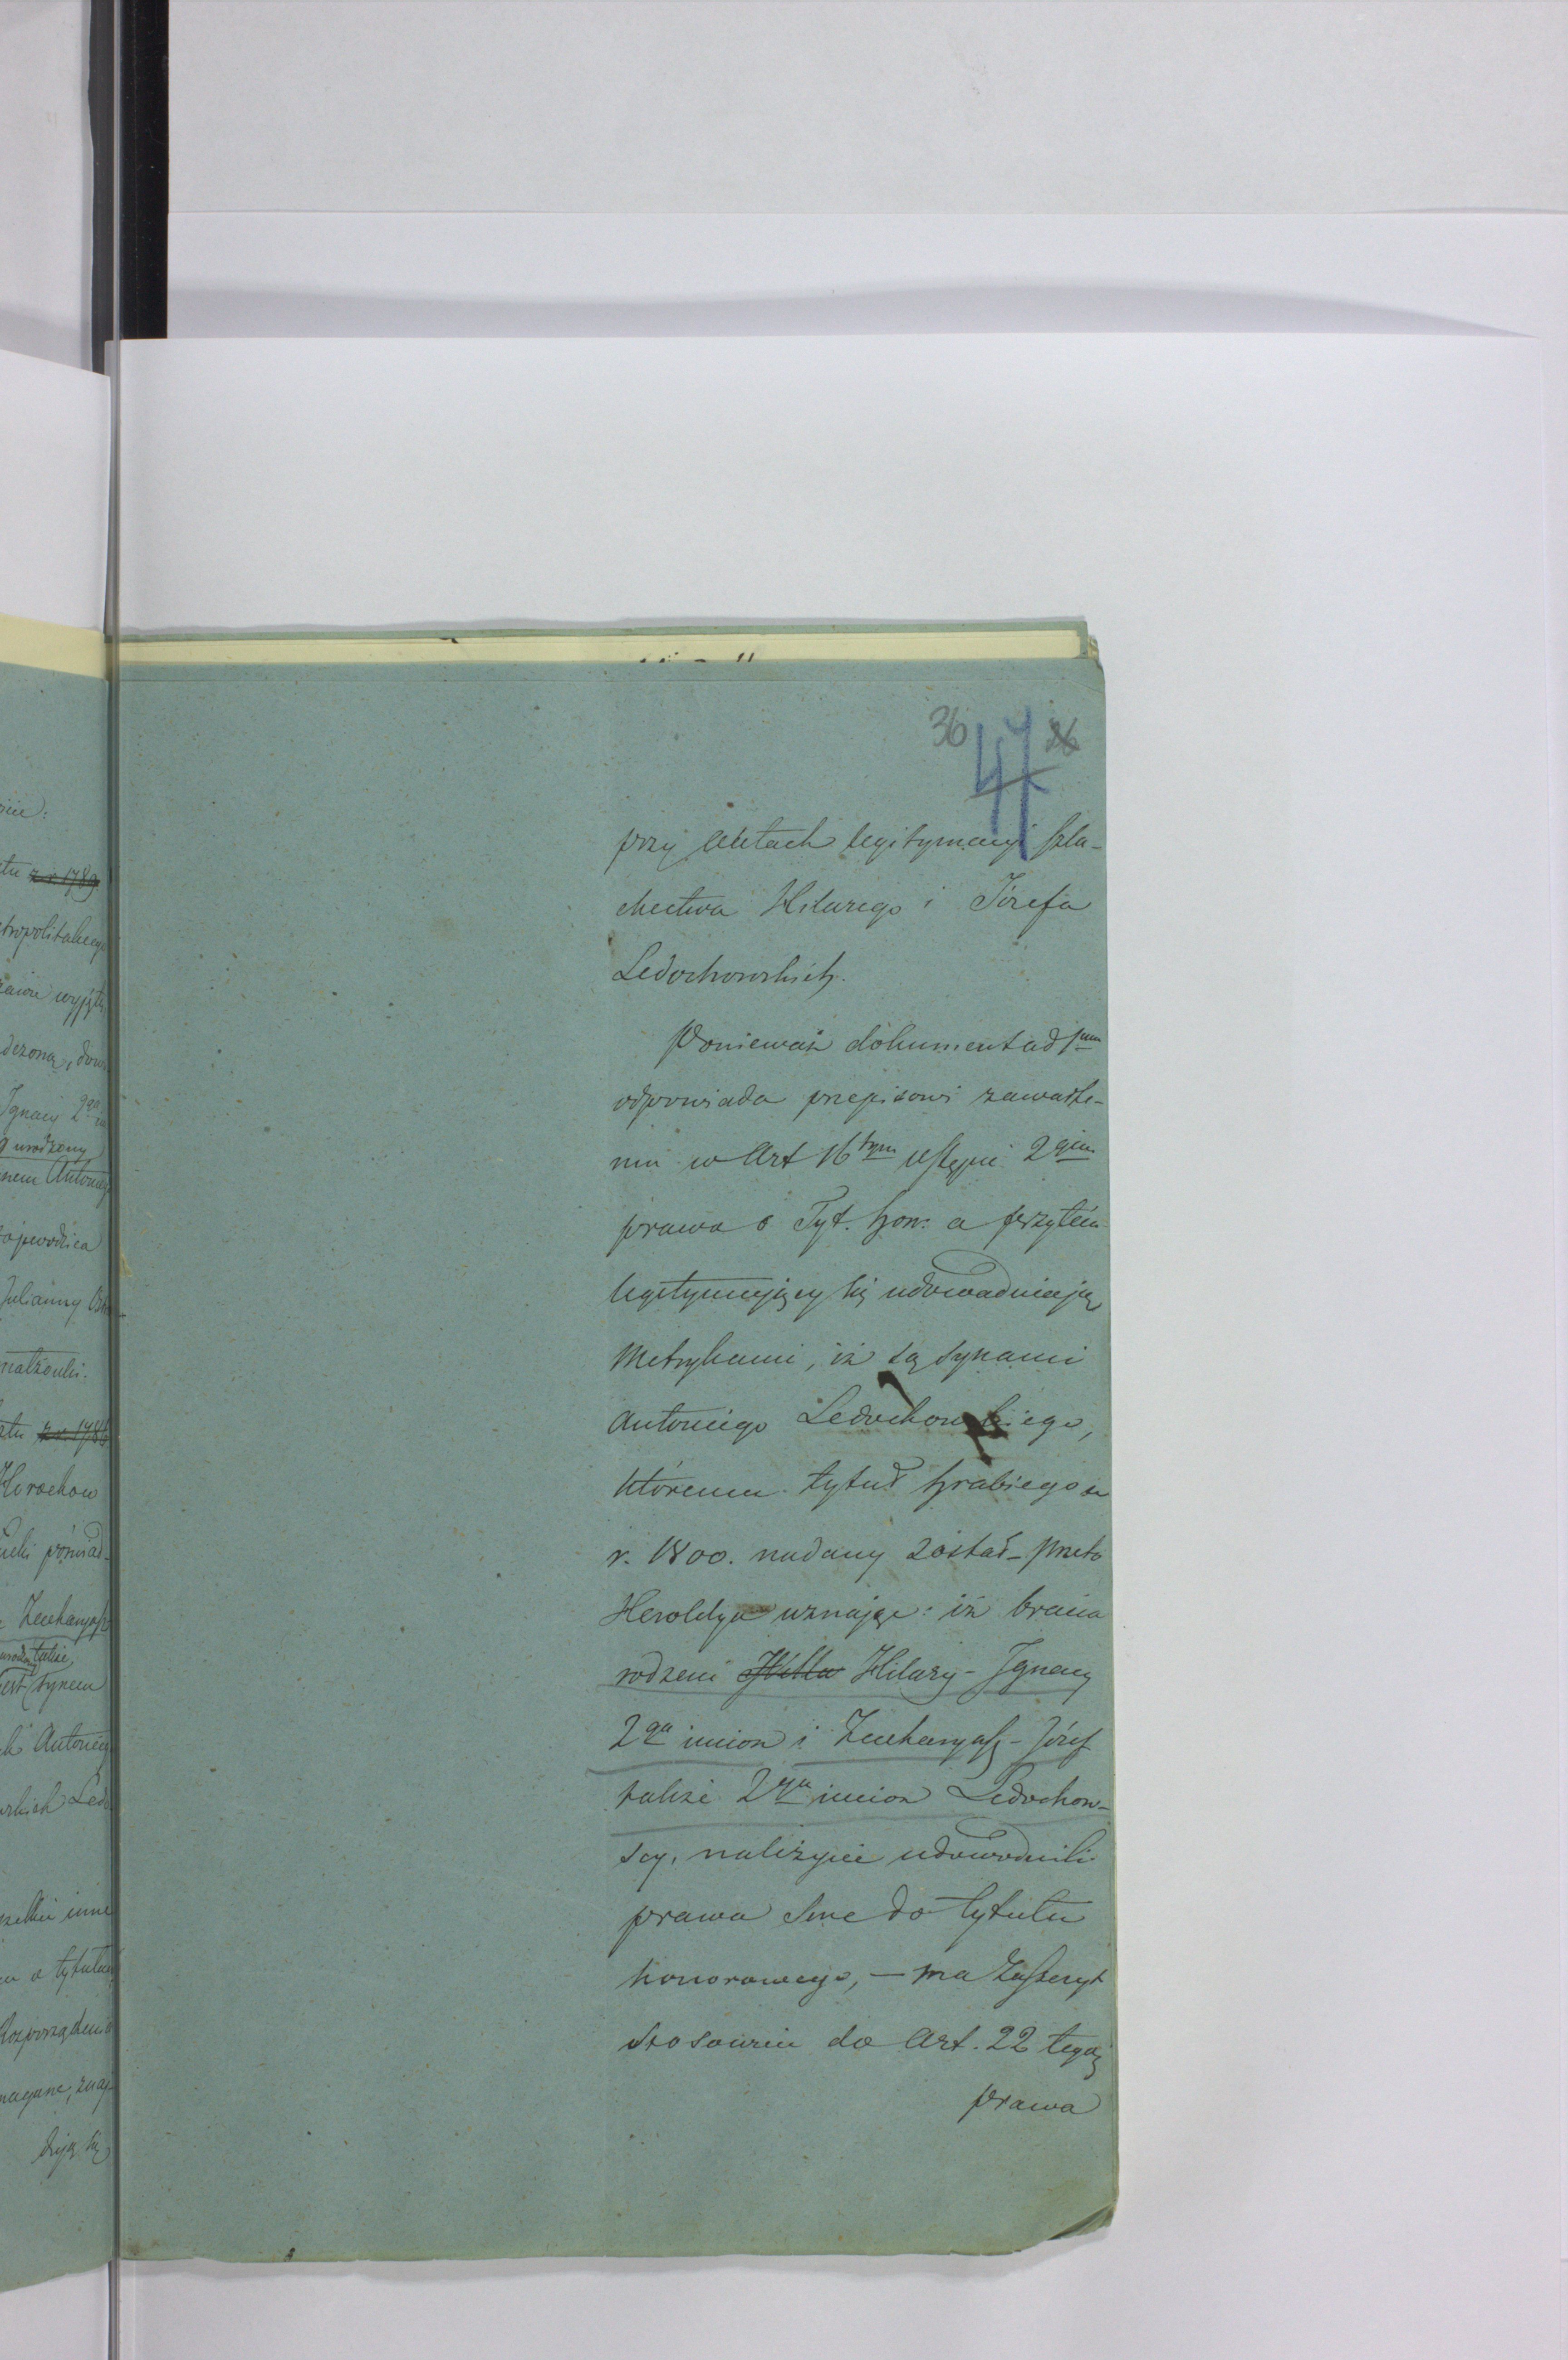 36 47 26
przy aktach legitymacyi szla-
chectwa Hilarego i Józefa
Ledochowskich.
Ponieważ dokument ad 1um
odpowiada przepisowi zawarte-
mu w Art 16tym ustępie 2gim
prawa o Tyt. hon. a przytém
legitymujący się udowadniają
metrykami, iż są synami
Antoniego Ledochowskiego,
któremu tytuł hrabiego w
r. 1800. nadany został – przeto
Heroldya uznając: iż bracia
rodzeni Hilary – Ignacy
2ga imion i Zacharyasz – Józef
także 2ga imion Ledochow-
scy, należycie udowodnili
prawa swe do tytułu
honorowego, – ma zaszczyt
stosownie do Art. 22 tegoż
prawa
tu z r. 1789
Ignacy 2ga
urodzony
nem Antoniego
ojewodzica
Julianny
małżonki.
z r. 1786
Horochow
poświad-
Zacharyasz
także
est synem
Antonieg
inne
o tytułach
Rozporządzenia
dują się